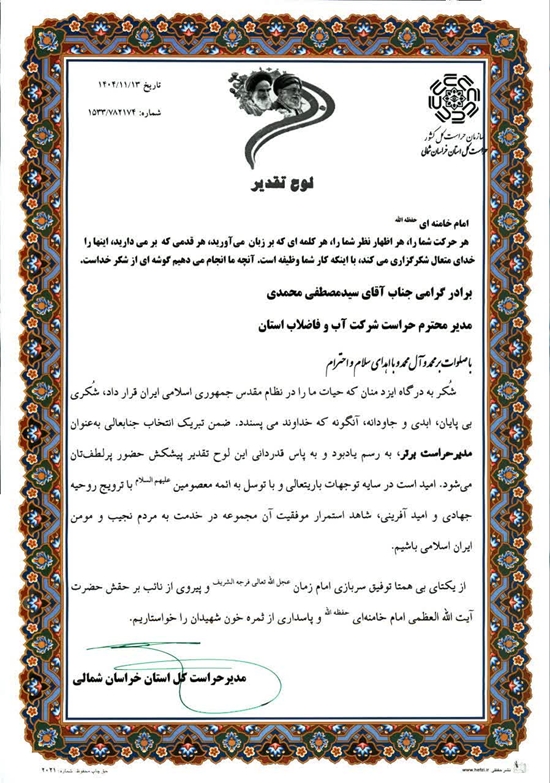 تاریخ ۱۴۰۴/۱۱/۱۳
شماره: ۱۵۳۳/۷۸۲۱۷۴
سازمان حراست کل کشور
حراست کل استان خراسان شمالی
لوح تقدیر
امام خامنه ای حفظه الله
هر حرکت شما را، هر اظهار نظر شما را، هر کلمه ای که بر زبان می‌آورید، هر قدمی که بر می دارید، اینها را
خدای متعال شکرگزاری می کند، با اینکه کار شما وظیفه است. آنچه ما انجام می دهیم گوشه ای از شکر خداست.
برادر گرامی جناب آقای سیدمصطفی محمدی
مدیر محترم حراست شرکت آب و فاضلاب استان
با صلوات بر محمد و آل محمد و با اهدای سلام و احترام
شکر به درگاه ایزد منان که حیات ما را در نظام مقدس جمهوری اسلامی ایران قرار داد، شکری
بی پایان، ابدی و جاودانه، آنگونه که خداوند می پسندد. ضمن تبریک انتخاب جنابعالی به‌عنوان
مدیرحراست برتر، به رسم یادبود و به پاس قدردانی این لوح تقدیر پیشکش حضور پرلطف‌تان
می‌شود. امید است در سایه توجهات باریتعالی و با توسل به ائمه معصومین علیهم السلام با ترویج روحیه
جهادی و امید آفرینی، شاهد استمرار موفقیت آن مجموعه در خدمت به مردم نجیب و مومن
ایران اسلامی باشیم.
از یکتای بی همتا توفیق سربازی امام زمان عجل الله تعالی فرجه الشریف و پیروی از نائب بر حقش حضرت
آیت الله العظمی امام خامنه‌ای حفظه الله و پاسداری از ثمره خون شهیدان را خواستاریم.
مدیرحراست کل استان خراسان شمالی
حق چاپ محفوظ. شماره: ۲۰۲۱